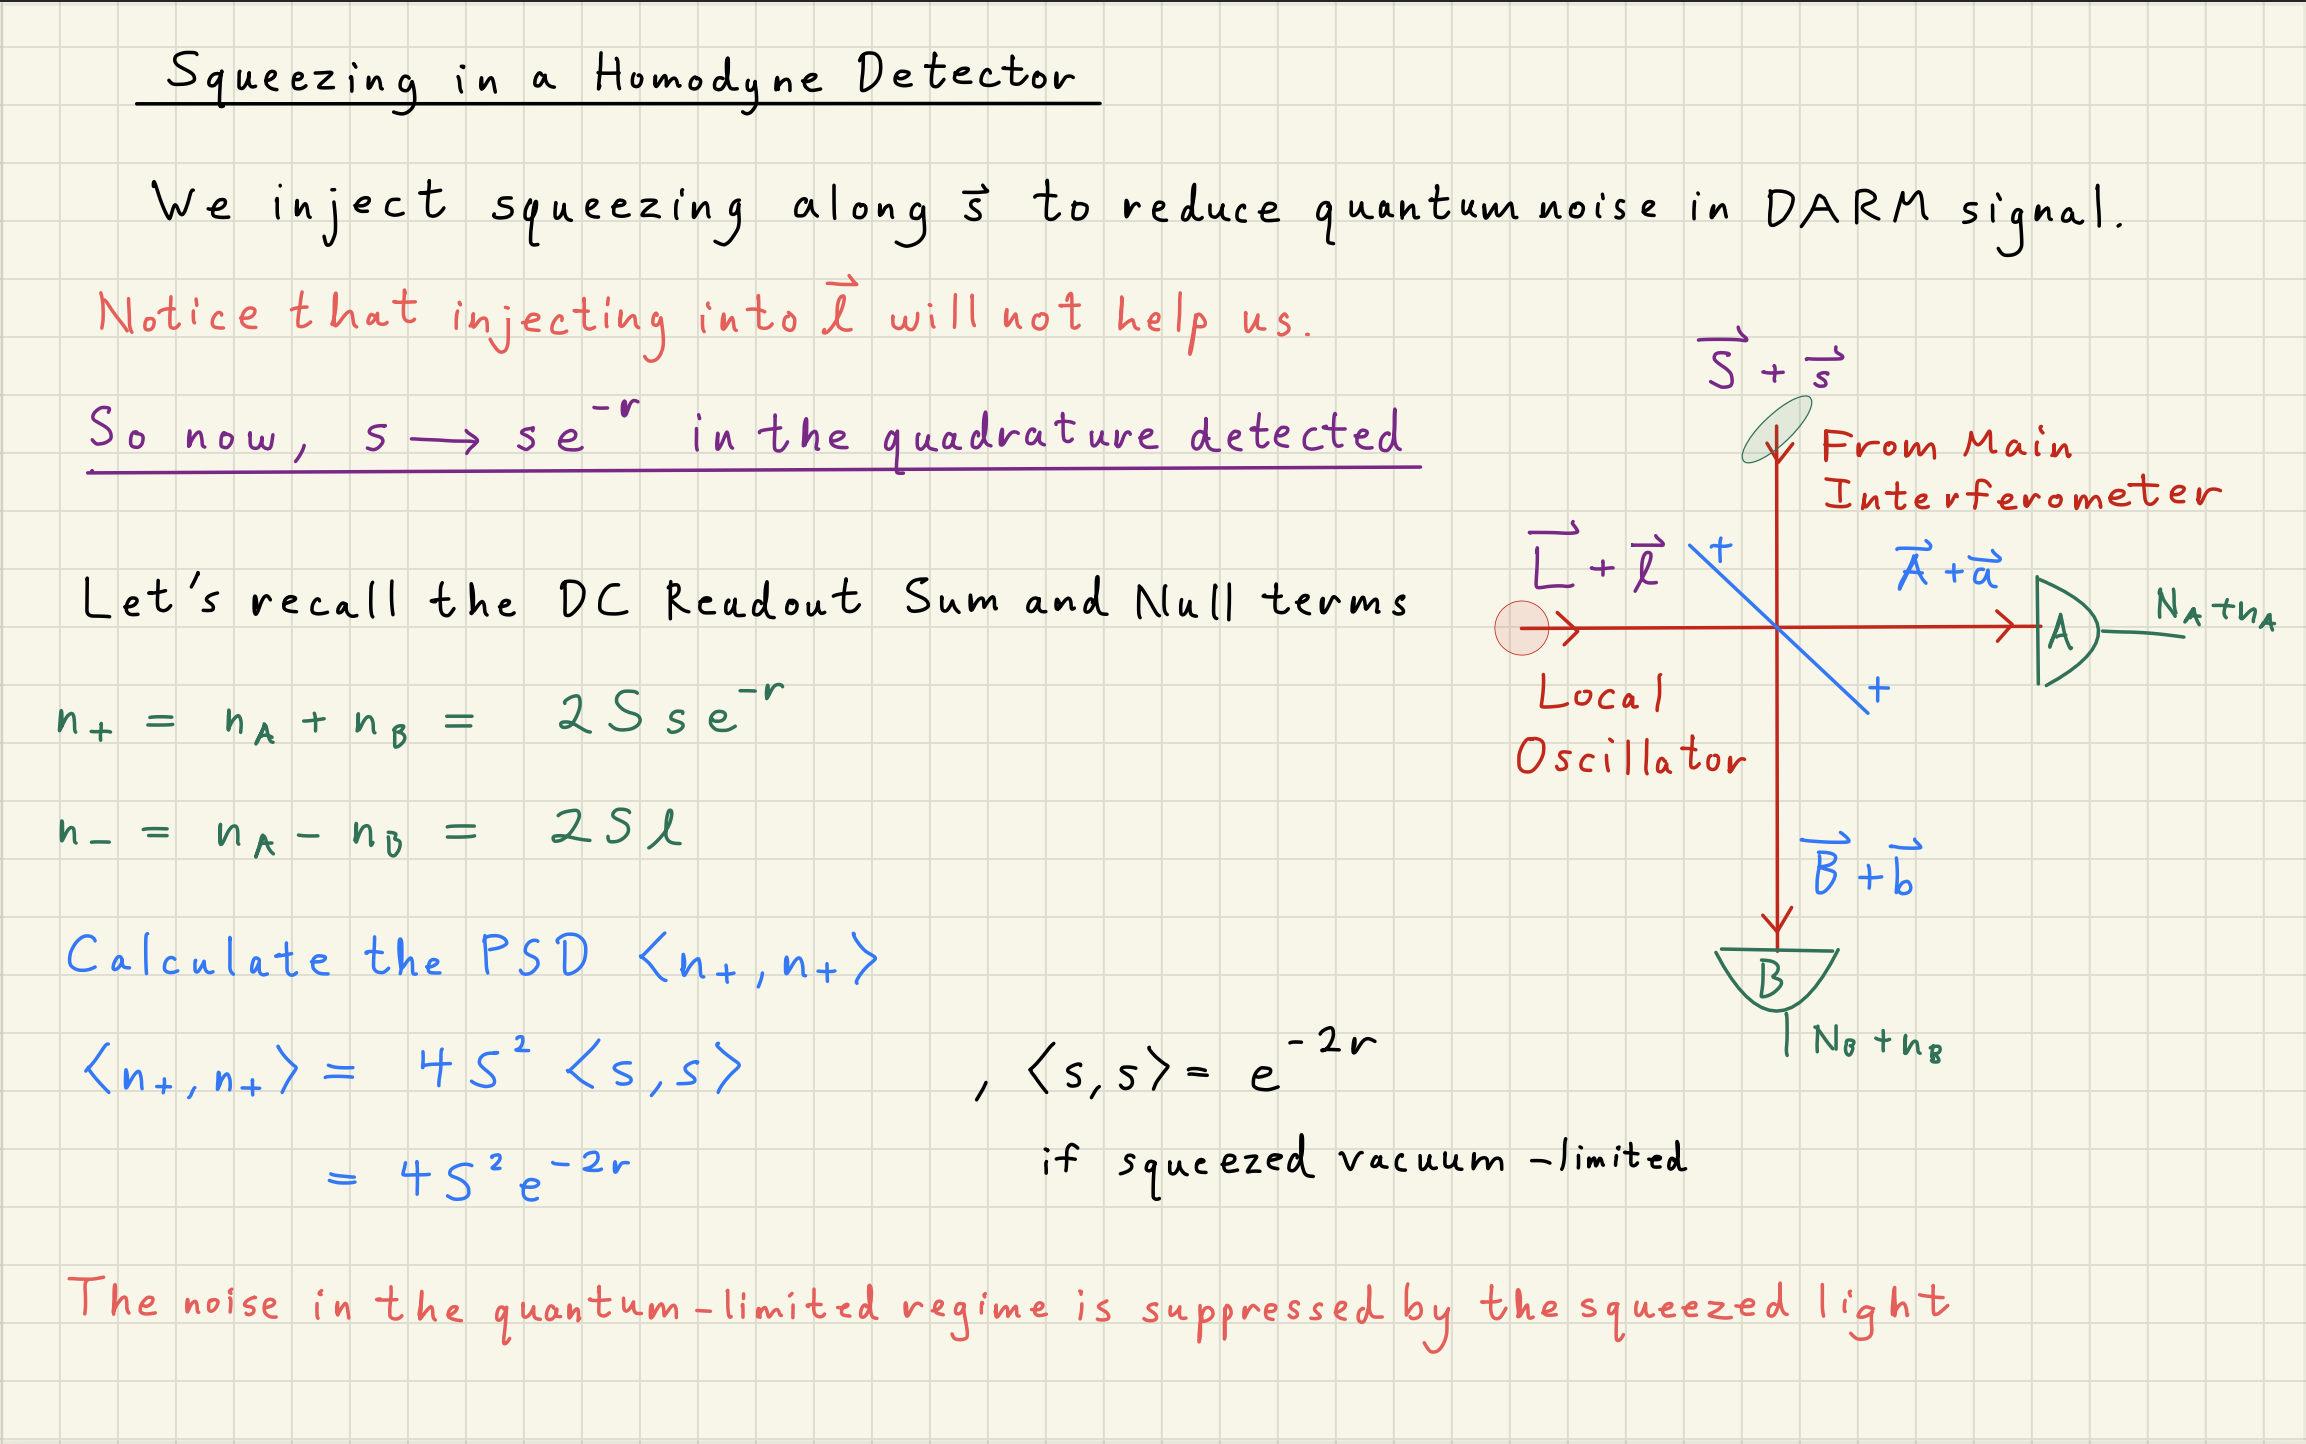 Squeezing in a Homodyne Detector
We inject squeezing along s⃗ to reduce quantum noise in DARM signal.
Notice that injecting into l⃗ will not help us.
So now, s → s e^{-r} in the quadrature detected
Let's recall the DC Readout Sum and Null terms
n₊ = n_A + n_B = 2 S s e^{-r}
n₋ = n_A − n_B = 2 S l
Calculate the PSD ⟨n₊, n₊⟩
⟨n₊, n₊⟩ = 4 S² ⟨s, s⟩ , ⟨s, s⟩ = e^{-2r}
if squeezed vacuum-limited
= 4 S² e^{-2r}
The noise in the quantum-limited regime is suppressed by the squeezed light
S⃗ + s⃗
From Main
Interferometer
L⃗ + l⃗
+
A⃗ + a⃗
A
N_A + n_A
Local
Oscillator
+
B⃗ + b⃗
B
N_B + n_B